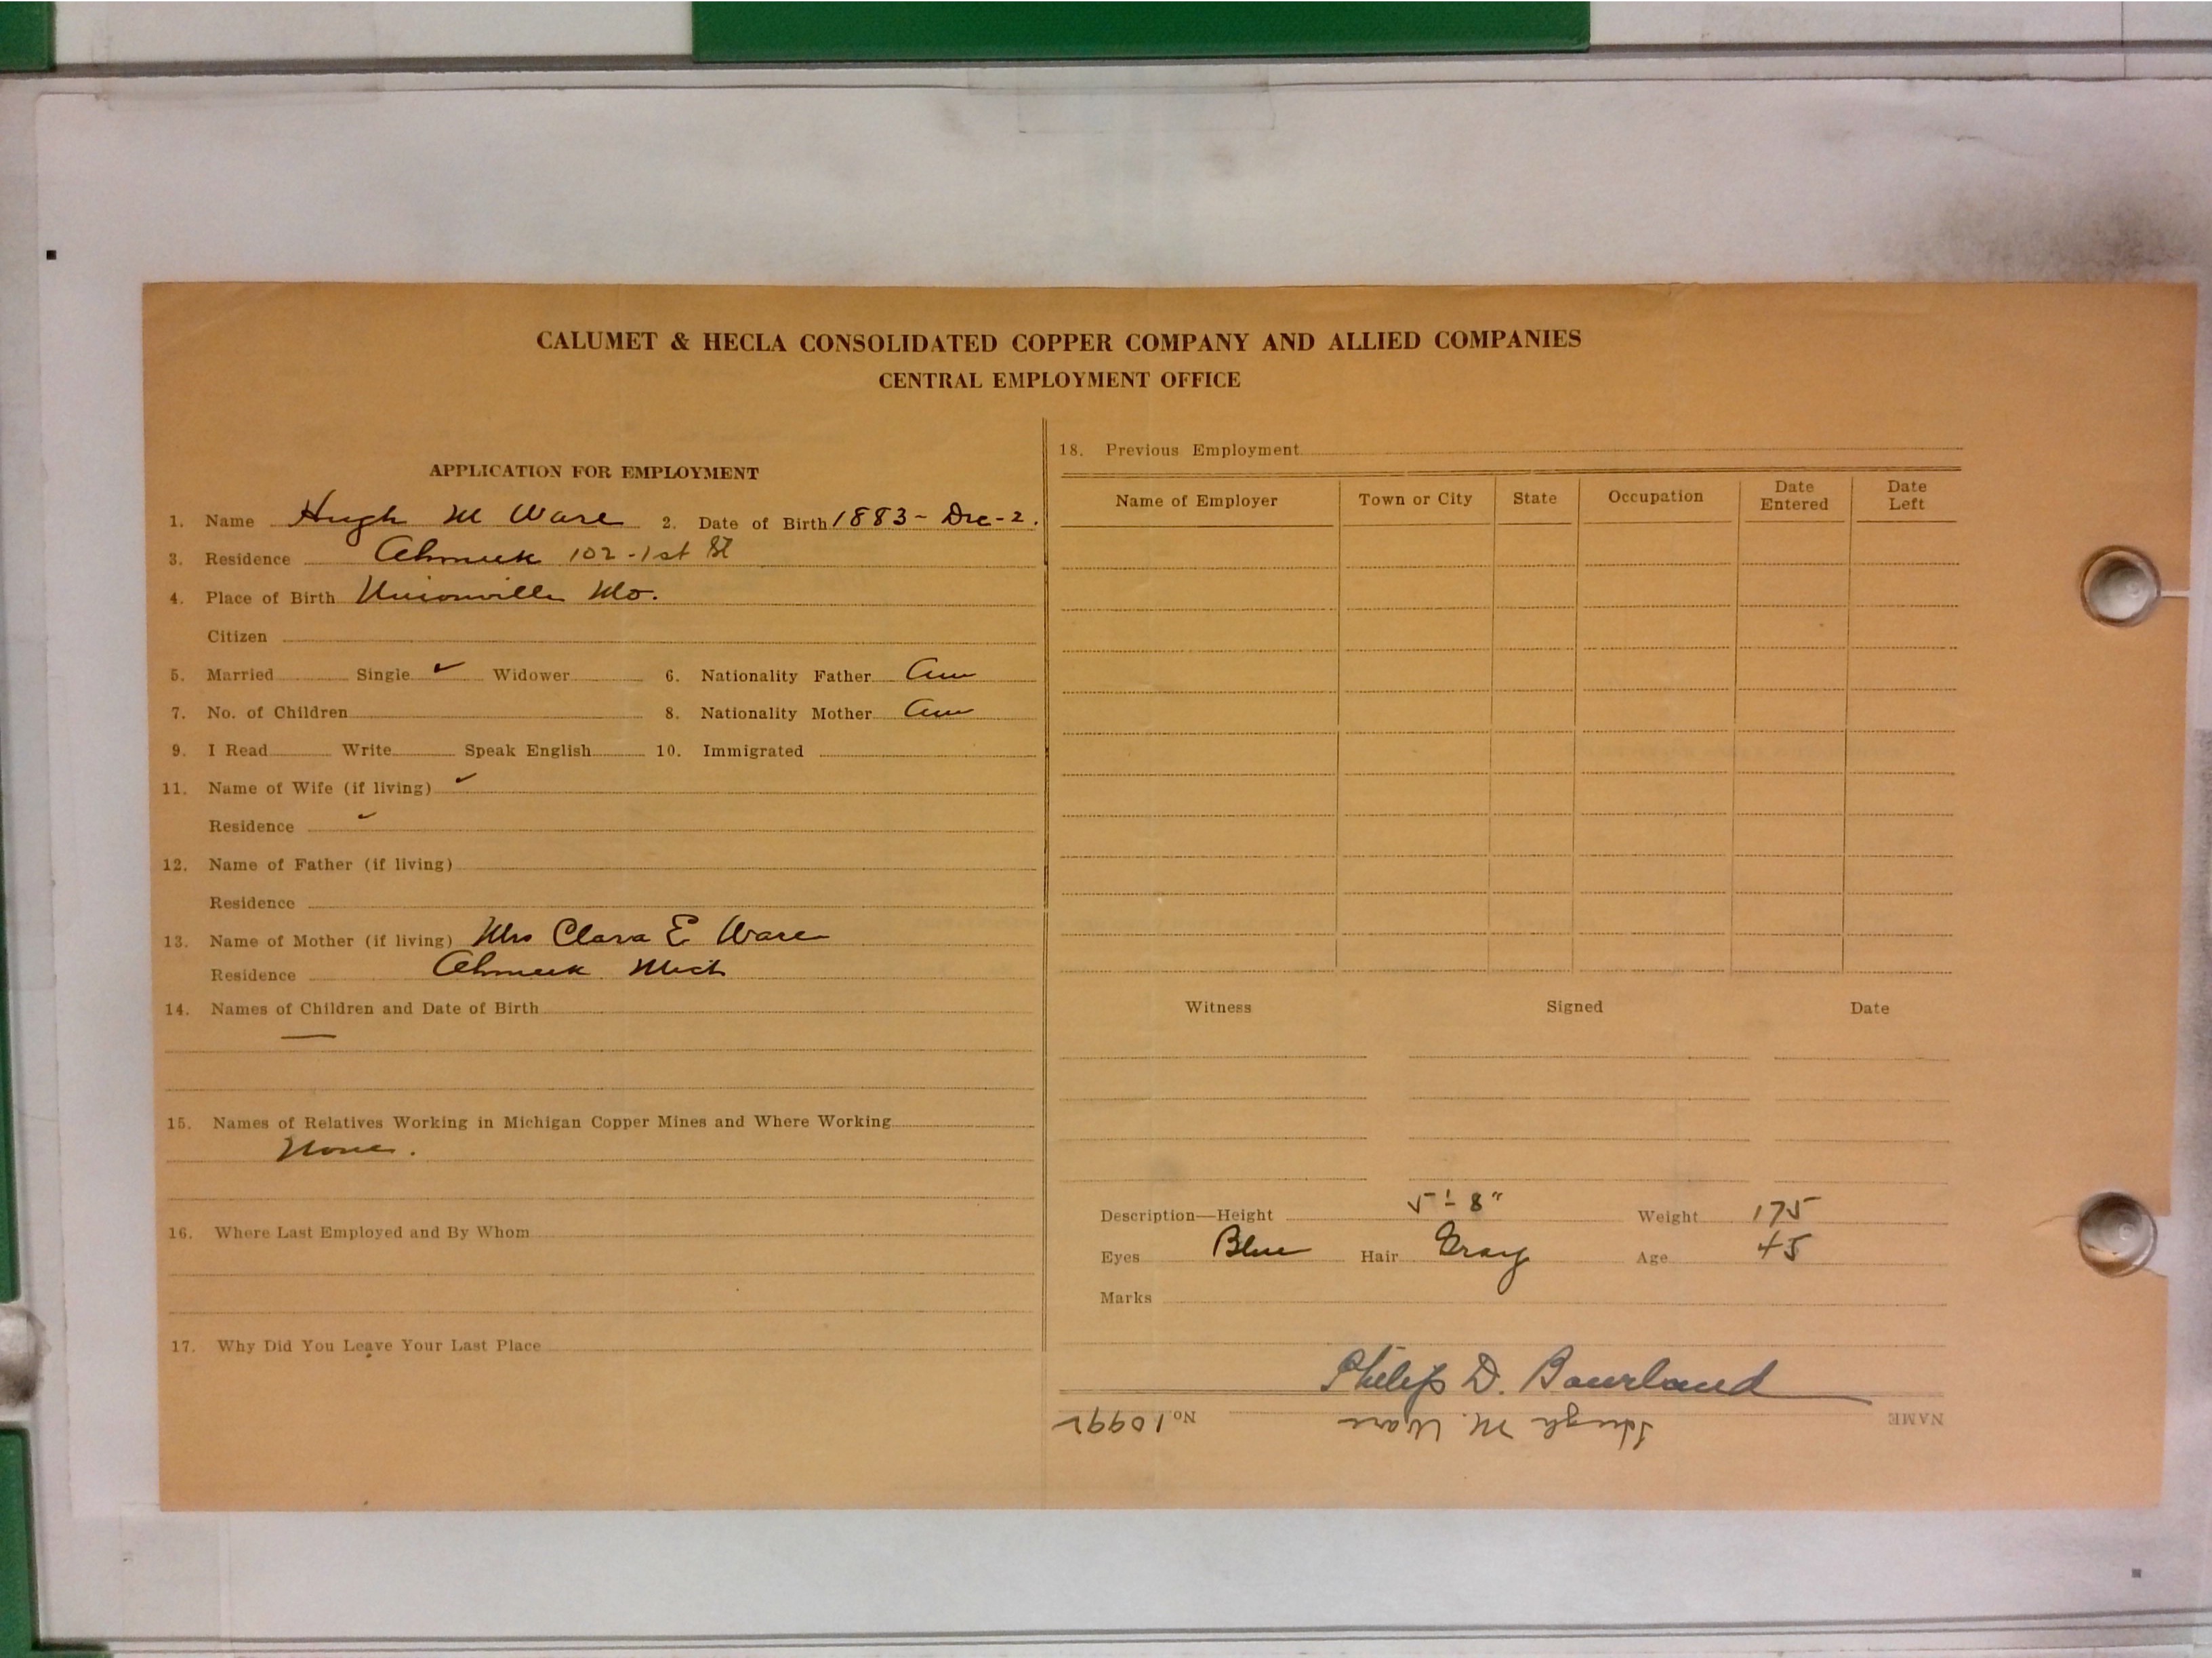 CALUMET & HECLA CONSOLIDATED COPPER COMPANY AND ALLIED COMPANIES
CENTRAL EMPLOYMENT OFFICE
APPLICATION FOR EMPLOYMENT
1. Name Hugh M Ware 2. Date of Birth 1883- Dec-2.
3. Residence Ahmeek 102-1st St
4. Place of Birth Unionville Mo.
Citizen
5. Married Single ✓ Widower 6. Nationality Father Am
7. No. of Children 8. Nationality Mother Am
9. I Read Write Speak English 10. Immigrated
11. Name of Wife (if living) ✓
Residence ✓
12. Name of Father (if living)
Residence
13. Name of Mother (if living) Mrs Clara E Ware
Residence Ahmeek Mich
14. Names of Children and Date of Birth
—
15. Names of Relatives Working in Michigan Copper Mines and Where Working
None.
16. Where Last Employed and By Whom
17. Why Did You Leave Your Last Place
18. Previous Employment
Name of Employer Town or City State Occupation Date Entered Date Left
Witness Signed Date
Description—Height 5'-8" Weight 175
Eyes Blue Hair Gray Age 45
Marks
Philip D. Bourland
NAME Hugh M. Ware No 10992